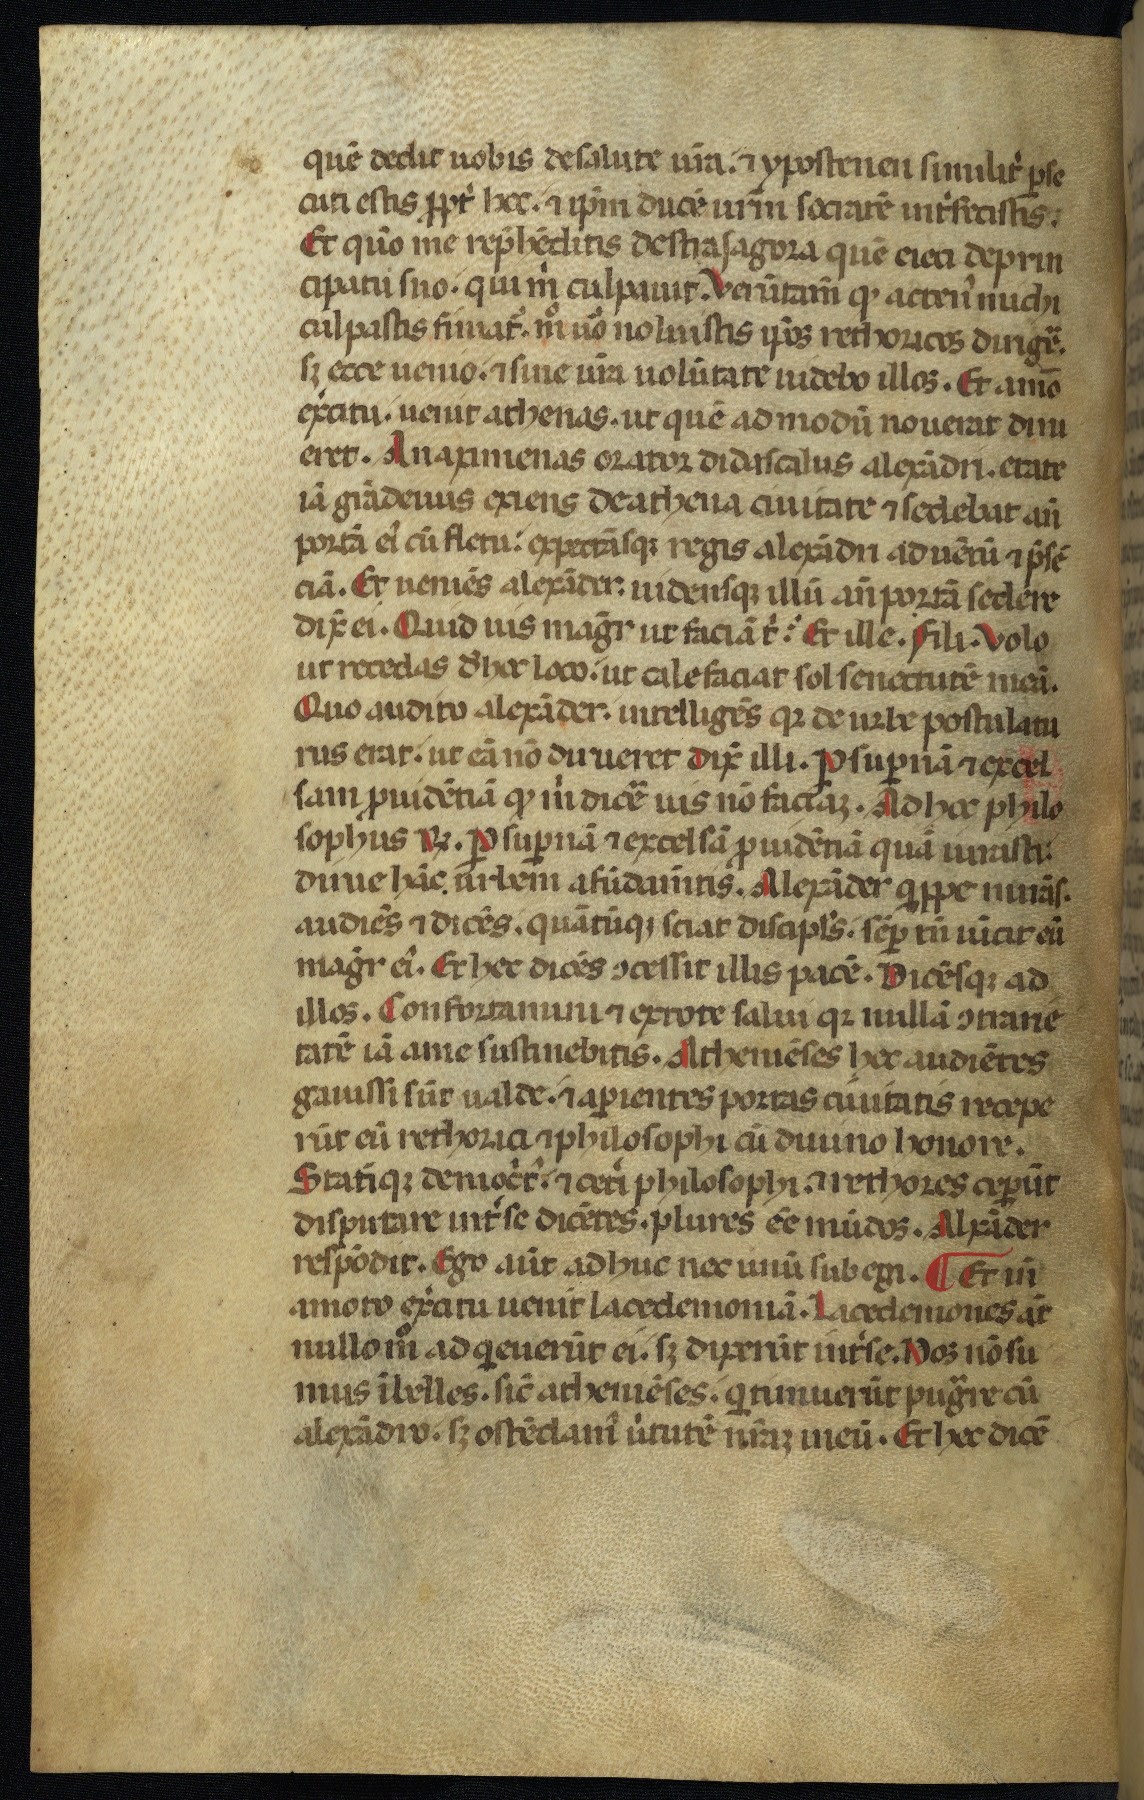 quē dedit uobis de salute ur̄a. ⁊ ypostenen similit᷑ ꝑse
cuti estis ꝓpt᷑ hec. ⁊ ip̄m ducē ur̄m socratē int᷑fecistis.
Et quō me rephēditis de strasagora quē eieci de prin
cipatu suo. qui m̊ culpauit. Verūtam̄ ꝙ actenꝰ michi
culpastis
rethoricos dirigē.
sꝫ ecce uenio. ⁊ sine ur̄a uolūtate uidebo illos. Et amō
ex̄citu. uenit athenas. ut quē ad modū nouerat diru
eret. Anaximenas orator didascalus alexādri. etate
iā grādeuus exiens de athena ciuitate ⁊ sedebat an̄
portā eiꝰ cū fletu. expectāsqꝫ regis alexādri aduētū ⁊ p̄sē
ciā. Et ueniēs alexāder. uidensqꝫ illū an̄ portā sedere
dix̄ ei. Quid uis magr̄ ut faciā t᷑. Et ille. Fili. Volo
ut recedas d̓ hoc loco. ut calefaciat sol senectutē meā.
Quo audito alexāder. intelligēs qꝛ de urbe postulatu
rus erat. ut eā nō dirueret dix̄ illi. Ꝑ suꝑnā ⁊ excel
sam ꝓuidētiā ꝙ m̓ dicē uis nō faciaꝫ. Ad hec philo
sophus ꝶ. Ꝑ suꝑnā ⁊ excelsā ꝓuidētiā quā iurasti.
dirue hāc urbem a fūdam̄tis. Alexāder qͥppe mirās.
audiēs ⁊ dicēs. quātūqꝫ sciat discipl̄s. sēꝑ tn̄ uīcit eū
magr̄ eiꝰ. Et hec dicēs ↄcessit illis pacē. Dicēsqꝫ ad
illos. Confortamini ⁊ extote salui qꝛ nullā ↄtrarie
tatē iā a me sustinebitis. Atheniēses hec audiētes
gauissi sūt ualde. ⁊ aꝑientes portas ciuitatis recepe
rūt eū rethorici ⁊ philosophi cū diuino honore.
Statīqꝫ democ᷑tꝰ. ⁊ cet᷑i philosophi. ⁊ rethores ceꝑūt
disputare int᷑ se dicētes. plures eē mūdos. Alxāder
respōdit. Ego aūt adhuc nec unū subegi. ¶ Et in̄
amoto ex̄citu uenit lacedemoniā. Lacedemones aūt
nullo mͦ adqͥeuerūt ei. sꝫ dixerūt int᷑ se. Nos nō su
mus ībelles. sic̄ atheniēses. qͥ timuerūt pugͣre cū
alexādro. sꝫ ostēdamꝰ u᷑tutē nr̄aꝫ meū. Et hec dicē